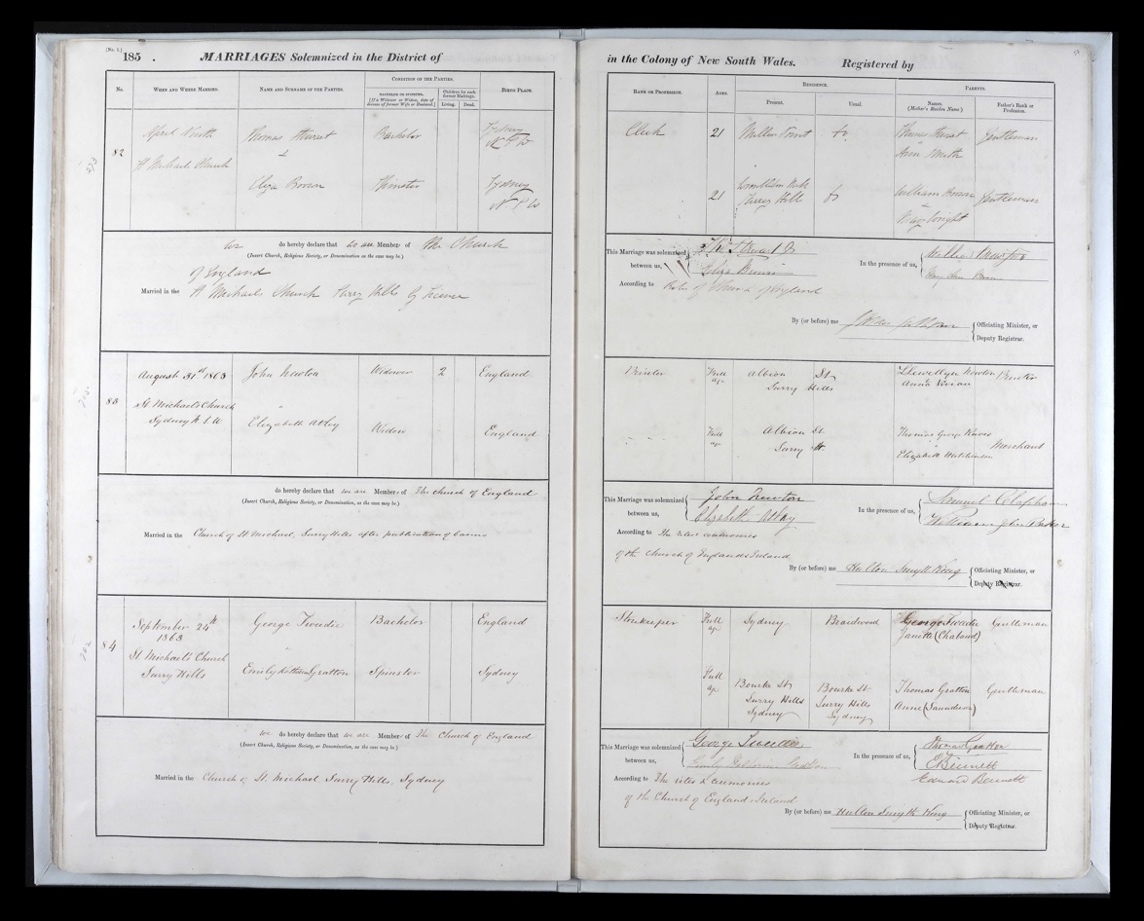 [No. 1.]
185 . MARRIAGES Solemnized in the District of
No. WHEN AND WHERE MARRIED. NAME AND SURNAME OF THE PARTIES. CONDITION OF THE PARTIES. BIRTH PLACE.
BACHELOR OR SPINSTER.
[If a Widower or Widow, date of decease of former Wife or Husband.]
Children by each former Marriage.
Living. Dead.
82
April
Thomas
Bachelor
Sydney
N S W
St Michaels Church
Eliza Brown
Spinster
Sydney
N S W
we do hereby declare that we are Members of the Church
(Insert Church, Religious Society, or Denomination, as the case may be.)
of England
Married in the St Michaels Church Surry Hills by License
83
August 31st 1863
John Newton
Widower
2
England
St Michael's Church
Sydney N. S. W
Elizabeth Atley
Widow
England
do hereby declare that we are Members of The Church of England
(Insert Church, Religious Society, or Denomination, as the case may be.)
Married in the Church of St Michael, Surry Hills after publication of banns
84
September 24th
1863
George Tweedie
Bachelor
England
St. Michael's Church
Surry Hills
Emily Gratton
Spinster
Sydney
we do hereby declare that we are Members of The Church of England
(Insert Church, Religious Society, or Denomination, as the case may be.)
Married in the Church of St. Michael Surry Hills, Sydney
in the Colony of New South Wales. Registered by
RANK OR PROFESSION. AGES. RESIDENCE. PARENTS.
Present. Usual. Names. (Mother's Maiden Name) Father's Rank or Profession.
Clerk
21
Millers Point
do
Thomas
Ann
Gentleman
21
Surry Hills
do
William Brown
Mary Wright
Gentleman
This Marriage was solemnized
between us,
Eliza Brown
In the presence of us,
William
Mary Ann Brown
According to Rites of Church of England
By (or before) me
Officiating Minister, or
Deputy Registrar.
Printer
Full
age
Albion St
Surry Hills
Llewellyn Newton
Anna Vivian
Printer
Full
age
Albion St
Surry H.
Thomas George
Elizabeth Hutchinson
Merchant
This Marriage was solemnized
between us,
John Newton
Elizabeth Atley
In the presence of us,
Samuel Clapham
William John
According to the rites & ceremonies
of the Church of England & Ireland
By (or before) me Hulton Smyth King
Officiating Minister, or
Deputy Registrar.
Storekeeper
Full
age
Sydney
Braidwood
George Tweedie
Janette (Chabaud)
Gentleman
Full
age
Bourke St
Surry Hills
Sydney
Bourke St
Surry Hills
Sydney
Thomas Gratton
Anne (Saunderson)
Gentleman
This Marriage was solemnized
between us,
George Tweedie
Emily Gratton
In the presence of us,
Thomas Gratton
E Bennett
Edward Bennett
According to The rites & ceremonies
of the Church of England & Ireland
By (or before) me Hulton Smyth King
Officiating Minister, or
Deputy Registrar.